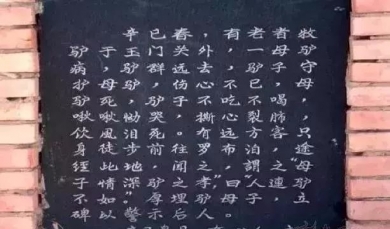 牧驴守母，只途"母驴立
者母子，喝肺客，之連，
老一驴已不裂方泊謂"人子
有，不吃心远布，曰母
，外去心不撕有罗之孝"驴人
春关远伤子。往闻之理后
已门群，驴哭死前，驴厚示
辛玉驴，恸泪步地深"警
于，母死啾風徒此情如以
驴病驴驴啾饮身經子不碑